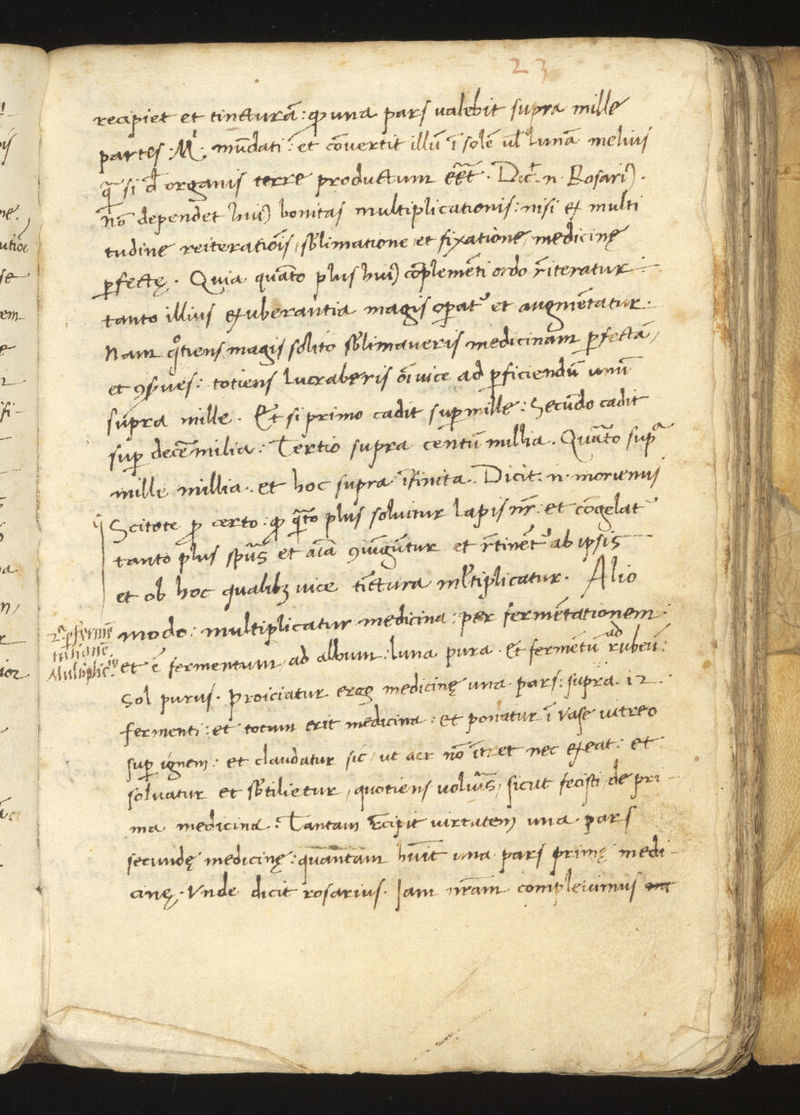 23
recipiet et tincturā: ꝙ una pars valebit supra mille
partes · mūdati: et cōvertit illū ī solē vl' lunā melius
q̄ si organis terre productum · Dic̄. n. Rosari9.
nō dependet hui9 bonitas multiplicationis: nisi ex multi
tudine reiteratiōis, sƀlimatione et fixatione, medicinę
ꝑfectę. Quia quāto plus hui9 cōplemēti ordo r̄iteratur
tanto illius exuberantia magis oꝑat᷑ et augmētatur.
Nam qͦtiens magis solito sƀlimaveris medicinam ꝑfectā,
et : totiens lucraberis ōi vice ad ꝑficiendū unū
supra mille. Et si primo cadit suꝑ mille: Secūdo cadit
suꝑ decē milia: Tertio supra centū millia. Quāto supᵃ
mille millia. et hoc supra īfinita. Dicit. n. morienus
Scitote ꝓ certo: ꝙ q̄to plus solvitur lapis nr̄: et cōgelat᷑
tanto plus sp̄us et aīa 9iūgūtur et r̄tinēt᷑ ab ipsis
et ob hoc qualibꝫ vice tīctura ml̄tiplicatur. Alio
modo: multiplicatur medicina: per fermētationem:
2ᵃ ꝑ fermē
tationē
Multiplic
et ē fermentum, ad album: luna pura. Et fermētū ad rubeū:
Sol purus. Proiciatur ergo medicinę una pars: supra 12
fermenti: et totum erit medicina: et ponatur ī vase vitreo
suꝑ ignem: et claudatur sic, ut aer nō īt̄et nec exeat: et
solvatur et sƀtilietur, quotiens volūis, sicut fecisti de pri
ma medicina. Tantam r̄cipit virtutem una pars
secundę medicinę: quantam hūit una pars primę medi
cinę. Unde dicit rosarius. Iam nr̄am complevimus